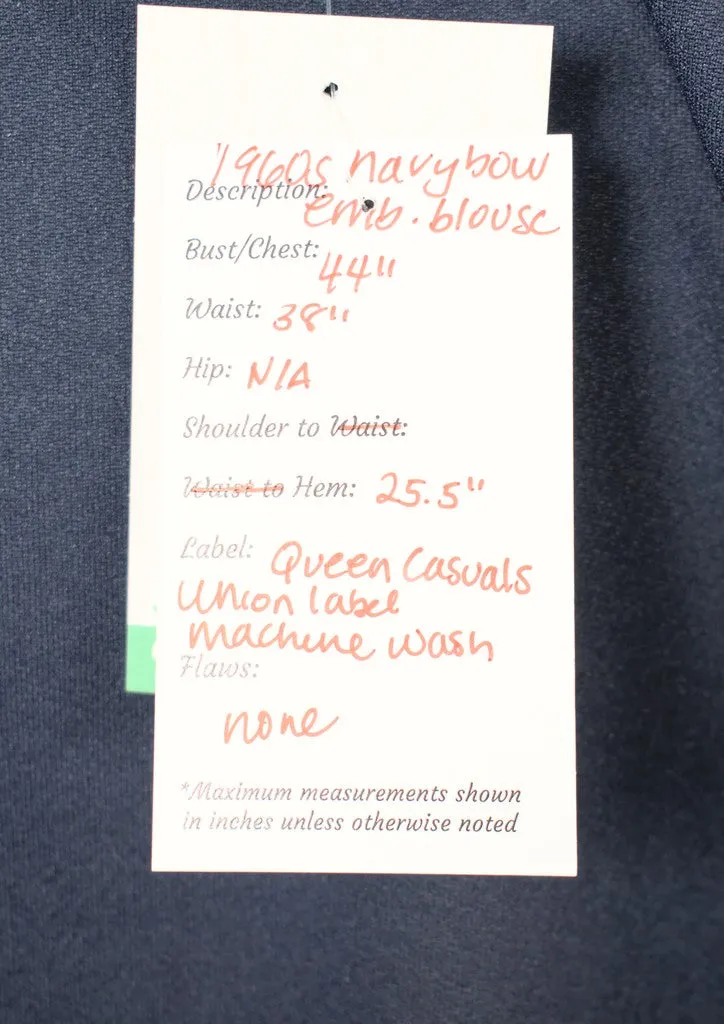 1960s navy bow
Description: emb. blouse
Bust/Chest: 44"
Waist: 38"
Hip: N/A
Shoulder to Waist:
Waist to Hem: 25.5"
Label: Queen Casuals
Union label
machine wash
Flaws:
none
*Maximum measurements shown
in inches unless otherwise noted